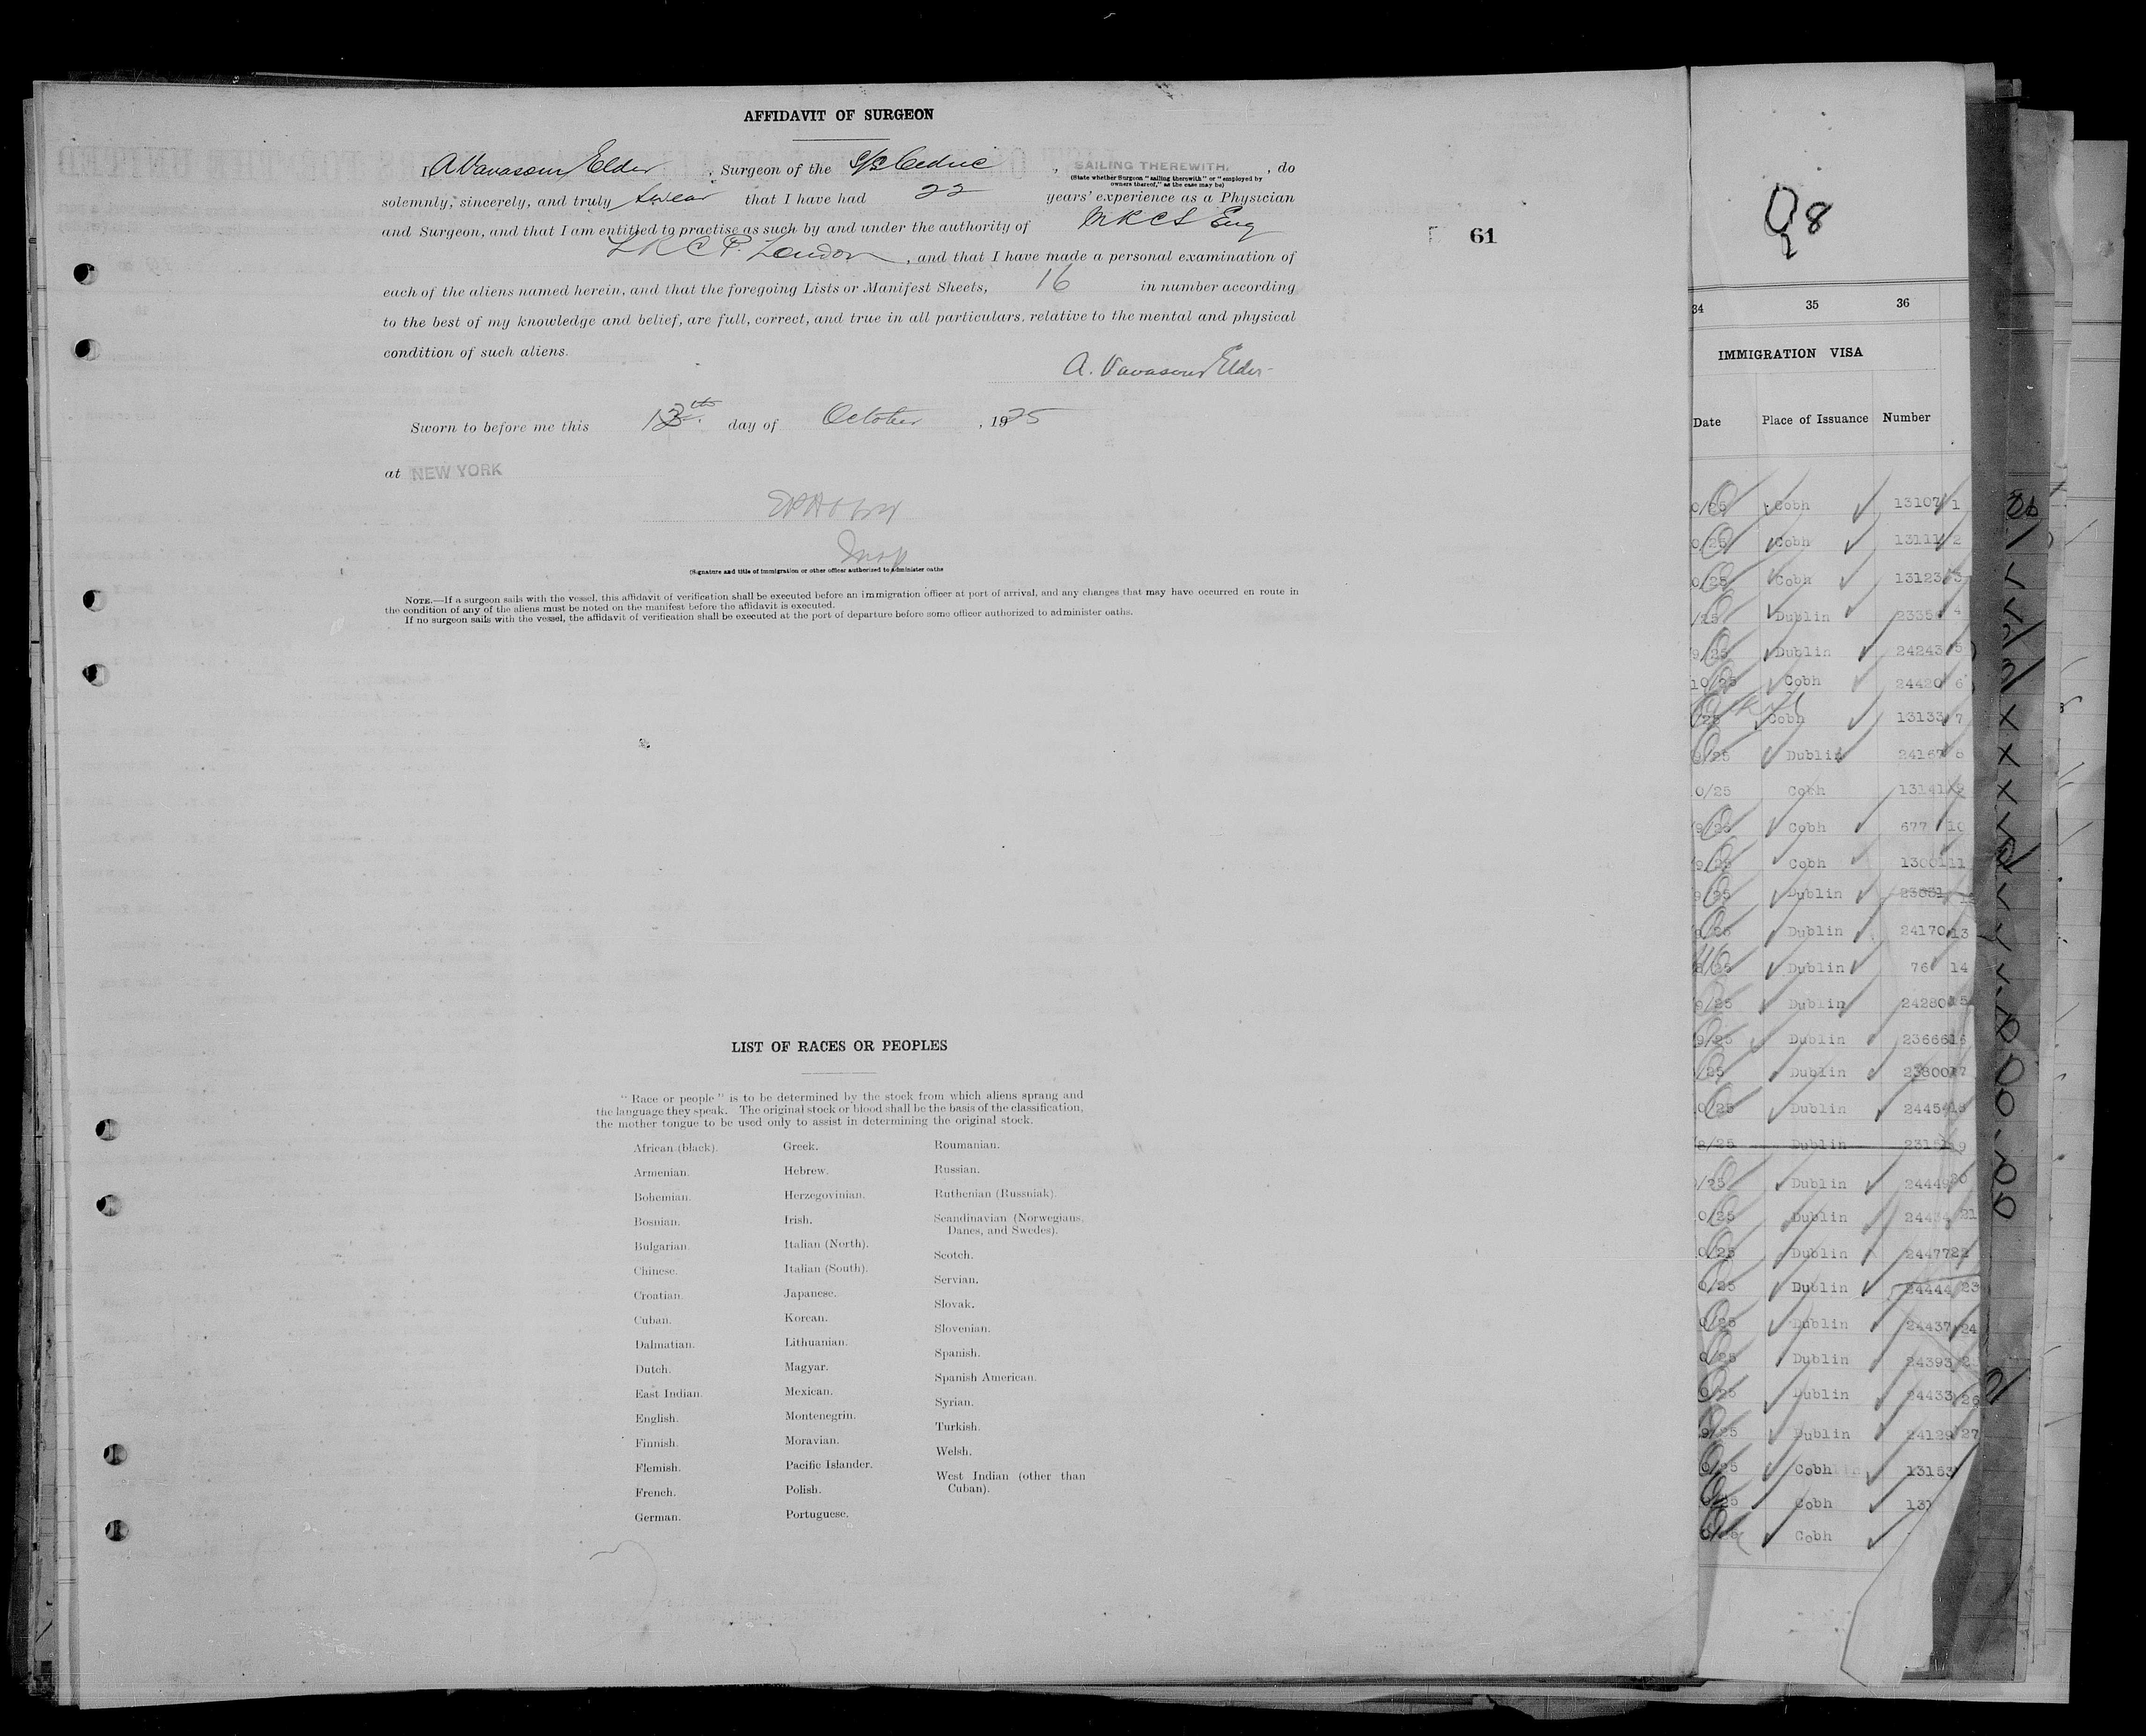 AFFIDAVIT OF SURGEON
I A Vavasour Elder, Surgeon of the S/S Cedric, SAILING THEREWITH, do
(State whether Surgeon "sailing therewith" or "employed by
owners thereof," as the case may be)
solemnly, sincerely, and truly swear that I have had 22 years' experience as a Physician
and Surgeon, and that I am entitled to practise as such by and under the authority of MRCS Eng
LRCP. London, and that I have made a personal examination of
each of the aliens named herein, and that the foregoing Lists or Manifest Sheets, 16 in number according
to the best of my knowledge and belief, are full, correct, and true in all particulars, relative to the mental and physical
condition of such aliens.
A. Vavasour Elder
Sworn to before me this day of October, 1925
at NEW YORK
Insp
(Signature and title of immigration or other officer authorized to administer oaths
NOTE.—If a surgeon sails with the vessel, this affidavit of verification shall be executed before an immigration officer at port of arrival, and any changes that may have occurred en route in
the condition of any of the aliens must be noted on the manifest before the affidavit is executed.
If no surgeon sails with the vessel, the affidavit of verification shall be executed at the port of departure before some officer authorized to administer oaths.
61
LIST OF RACES OR PEOPLES
"Race or people" is to be determined by the stock from which aliens sprang and
the language they speak. The original stock or blood shall be the basis of the classification,
the mother tongue to be used only to assist in determining the original stock.
African (black).
Armenian.
Bohemian.
Bosnian.
Bulgarian
Chinese.
Croatian.
Cuban.
Dalmatian.
Dutch.
East Indian.
English.
Finnish.
Flemish.
French.
German.
Greek.
Hebrew.
Herzegovinian.
Irish.
Italian (North).
Italian (South).
Japanese.
Korean.
Lithuanian.
Magyar.
Mexican.
Montenegrin.
Moravian.
Pacific Islander.
Polish.
Portuguese.
Roumanian.
Russian.
Ruthenian (Russniak).
Scandinavian (Norwegians,
Danes, and Swedes).
Scotch.
Servian.
Slovak.
Slovenian.
Spanish.
Spanish American.
Syrian.
Turkish.
Welsh.
West Indian (other than
Cuban).
34 35 36
IMMIGRATION VISA
Date Place of Issuance Number
0/25 Cobh 13107 1
0/25 Cobh 13111 2
0/25 Cobh 13123 3
/25 Dublin 4
9/25 Dublin 24243 5
10/25 Cobh 24420 6
/25 Cobh 13133 7
9/25 Dublin 24167 8
0/25 Cobh 13141 9
9/25 Cobh 677 10
9/25 Cobh 13001 11
9/25 Dublin 23831
9/25 Dublin 24170 13
8/25 Dublin 76 14
9/25 Dublin 24280 15
9/25 Dublin 23666 16
/25 Dublin 23800 17
0/25 Dublin 18
8/25 Dublin 19
/25 Dublin 24449 20
0/25 Dublin 21
0/25 Dublin 24477 22
0/25 Dublin 24444 23
0/25 Dublin 24437 24
0/25 Dublin 24393
0/25 Dublin 24433 26
9/25 Dublin 24129 27
0/25 Cobh 13153
Cobh 131
Cobh